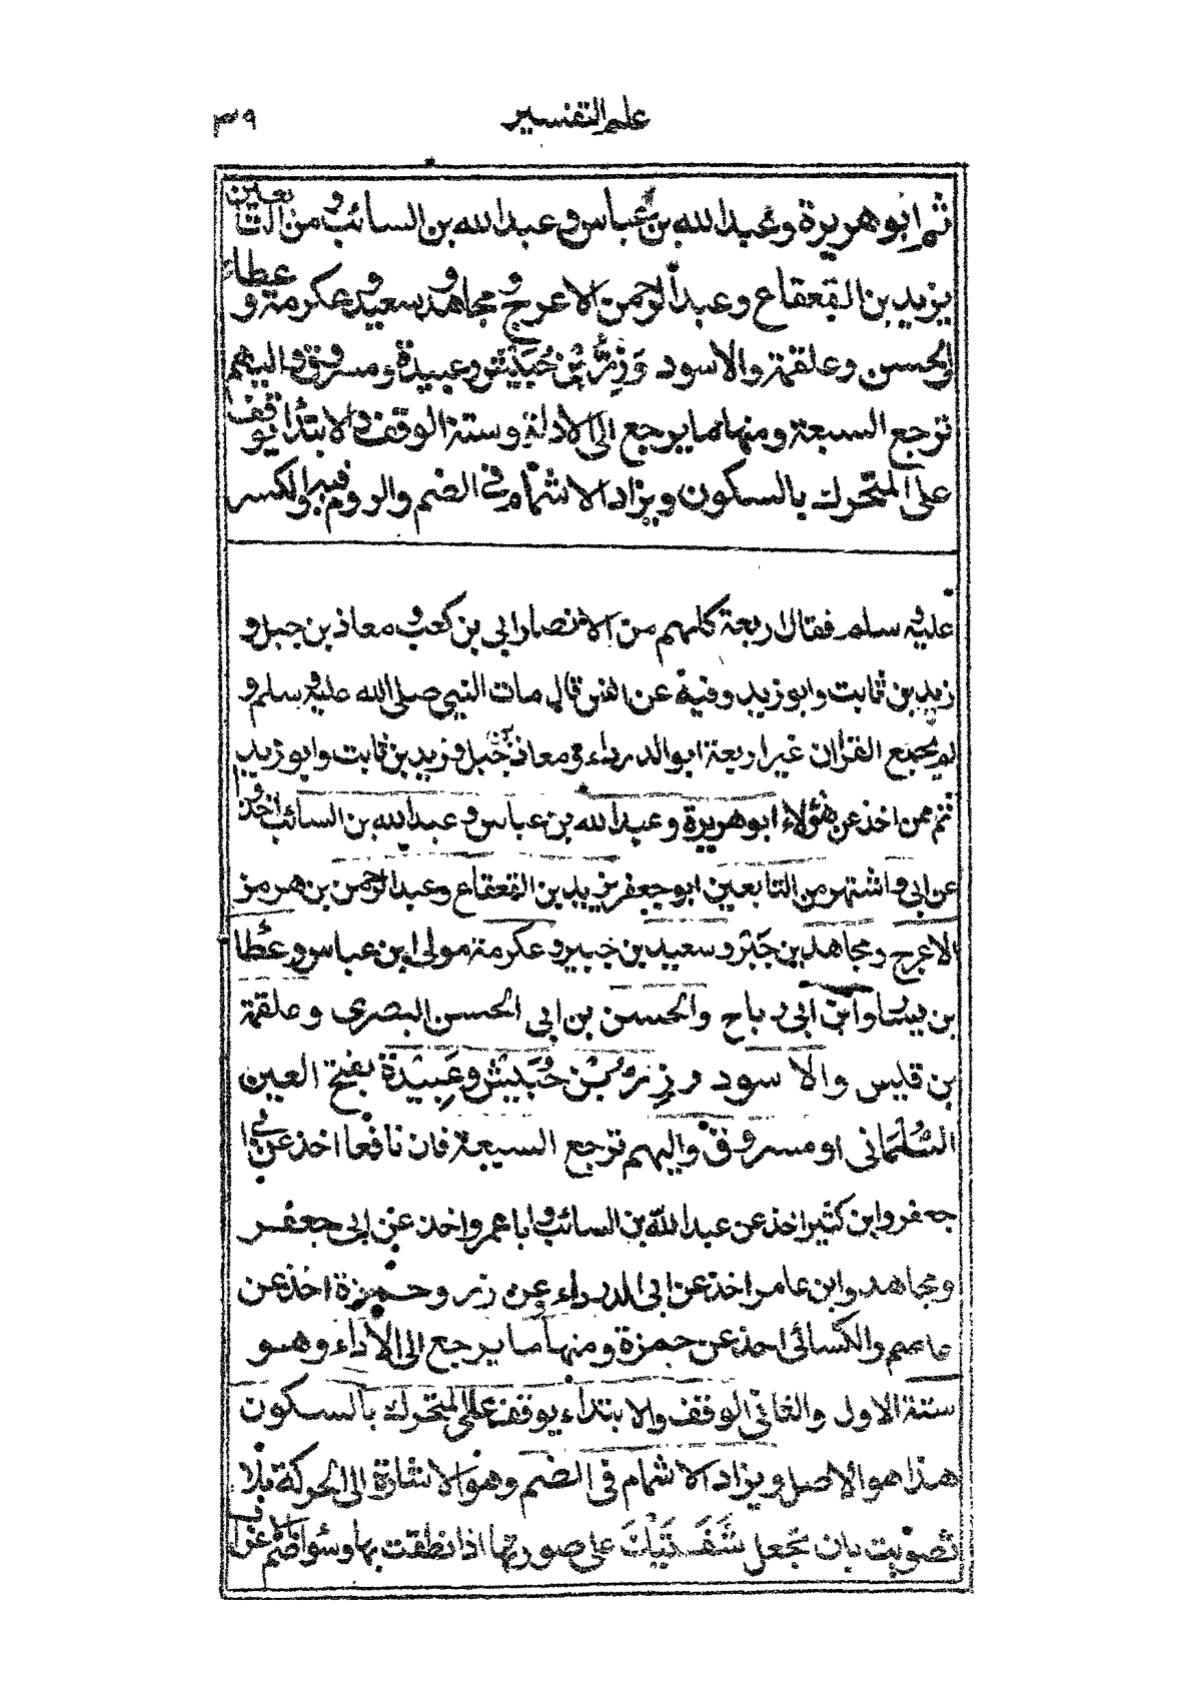 علم التفسير
٣٩
ثم ابو هريرة وعبد الله بن عباس وعبد الله بن السائب ومن التابعين
يزيد بن القعقاع وعبد الرحمن الاعرج ومجاهد وسعيد وعكرمة وعطاء و
الحسن وعلقمة والاسود وَزِرُّ بْنُ حُبَيْشٍ وعبيدة ومسروق واليهم
ترجع السبعة ومنها ما يرجع الى الاداء وستة الوقف والابتداء يوقف
على المتحرك بالسكون ويزاد الاشمام فى الضم والروم فيه والكسر
عليه وسلم فقال اربعة كلهم من الانصار ابى بن كعب ومعاذ بن جبل و
زيد بن ثابت وابو زيد وفيه عن انس قال مات النبى صلى الله عليه وسلم و
لم يجمع القرآن غير اربعة ابو الدرداء ومعاذ بن جبل وزيد بن ثابت وابو زيد
ثم ممن اخذ عن هؤلاء ابو هريرة وعبد الله بن عباس وعبد الله بن السائب اخذوا
عن ابى واشتهر من التابعين ابو جعفر يزيد بن القعقاع وعبد الرحمن بن هرمز
الاعرج ومجاهد بن جبر وسعيد بن جبير وعكرمة مولى ابن عباس وعطا
بن يسار وابن ابى رباح والحسن بن ابى الحسن البصرى وعلقمة
بن قليس والاسود وزِرُّ بْنُ حُبَيْشٍ وعَبِيْدَةُ بفتح العين
السَّلْمَانى او مسروق واليهم ترجع السبعة فان نافعا اخذ عن ابى
جعفر وابن كثير اخذ عن عبد الله بن السائب وابا عمرو اخذ عن ابى جعفر
ومجاهد وابن عامر اخذ عن ابى الدرداء عن زر وحمزة اخذ عن
عاصم والكسائى اخذ عن حمزة ومنها ما يرجع الى الاداء وهو
ستة الاول والثانى الوقف والابتداء يوقف على المتحرك بالسكون
هذا هو الاصل ويزاد الاشمام فى الضم وهو الاشارة الى الحركة بلا
تصويت بان تجعل شَفَتَيْكَ على صورتها اذا نطقت بها وسواء ضم